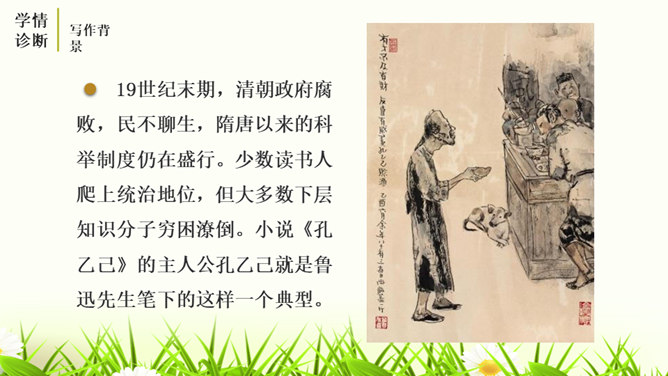 学情
诊断
写作背
景
19世纪末期，清朝政府腐
败，民不聊生，隋唐以来的科
举制度仍在盛行。少数读书人
爬上统治地位，但大多数下层
知识分子穷困潦倒。小说《孔
乙己》的主人公孔乙己就是鲁
迅先生笔下的这样一个典型。